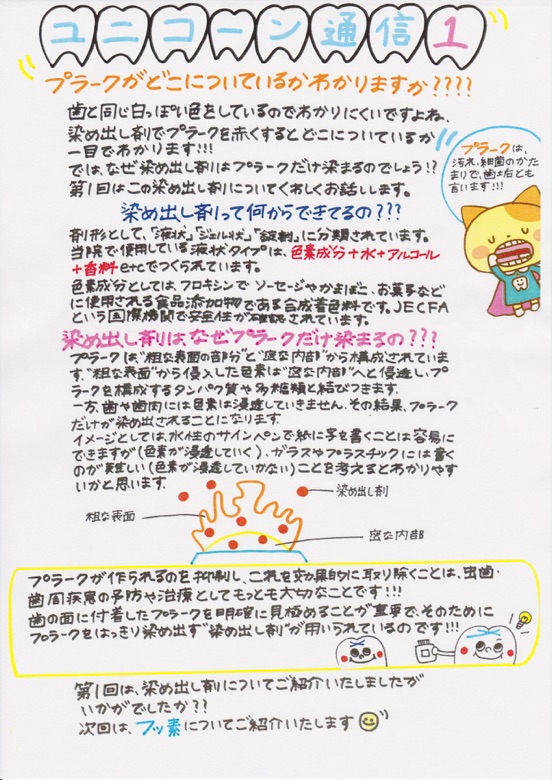 ユニコーン通信1
プラークがどこについているかわかりますか????
歯と同じ白っぽい色をしているのでわかりにくいですよね、
染め出し剤でプラークを赤くするとどこについているか
一目でわかります!!!
では、なぜ染め出し剤はプラークだけ染まるのでしょう!?
第1回はこの染め出し剤についてくわしくお話しします。
プラークは、
汚れ、細菌のかた
まりで、歯垢とも
言います!!!
染め出し剤って何からできてるの???
剤形として、「液状」「ジェル状」「錠剤」に分類されています。
当院で使用している液状タイプは、色素成分+水+アルコール
+香料etcでつくられています。
色素成分としては、フロキシンで ソーセージやかまぼこ、お菓子など
に使用される食品添加物である合成着色料です。JECFA
という国際機関で安全性が確認されています。
染め出し剤はなぜプラークだけ染まるの???
プラークは"粗な表面の部分"と"密な内部"から構成されていま
す。"粗な表面"から侵入した色素は"密な内部"へと浸透し、プ
ラークを構成するタンパク質や多糖類と結びつきます。
一方、歯や歯肉には色素は浸透していきません。その結果、プラーク
だけが染め出されることになります。
イメージとしては、水性のサインペンで紙に字を書くことは容易に
できますが(色素が浸透していく)、ガラスやプラスチックには書く
のが難しい(色素が浸透していかない)ことを考えるとわかりやす
いかと思います。
染め出し剤
粗な表面
密な内部
プラークが作られるのを抑制し、これを効果的に取り除くことは、虫歯・
歯周疾患の予防や治療としてもっとも大切なことです!!!
歯の面に付着したプラークを明確に見極めることが重要で、そのために
プラークをはっきり染め出す"染め出し剤"が用いられているのです!!!
第1回は、染め出し剤についてご紹介いたしましたが
いかがでしたか??
次回は、フッ素についてご紹介いたします